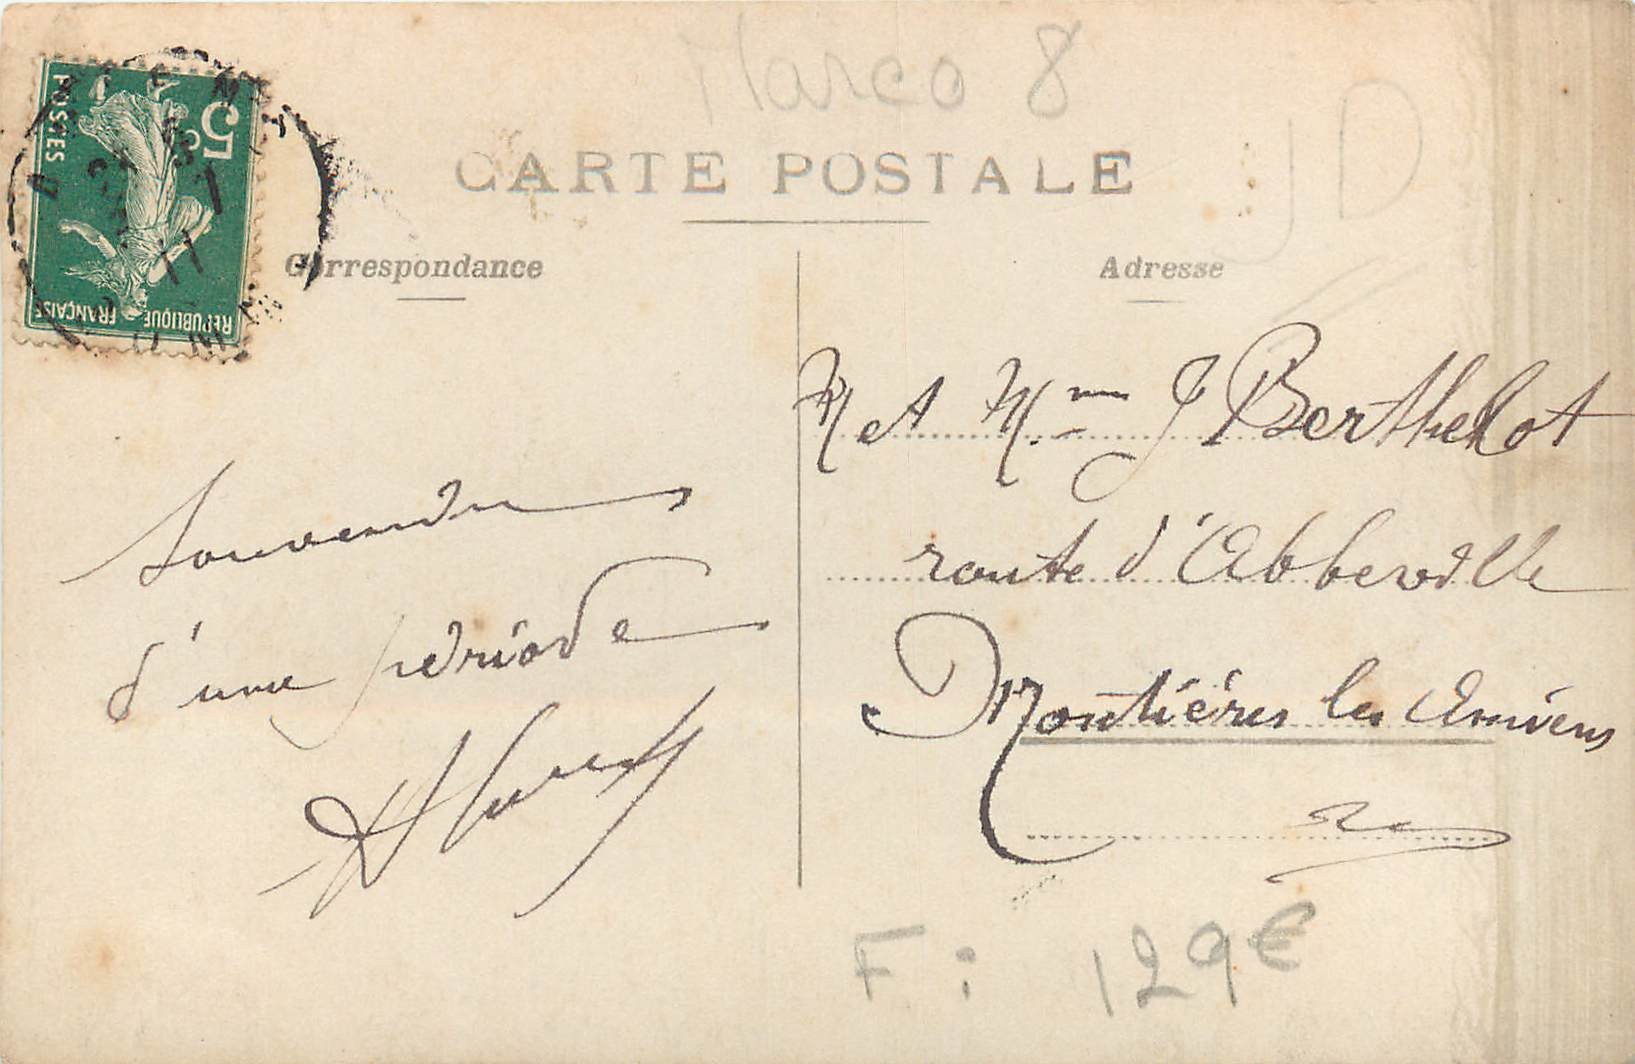 Marco 8
JD
CARTE POSTALE
5c
POSTES
REPUBLIQUE FRANÇAISE
Correspondance
Adresse
Souvenir
d'une période
M et M.me J Berthelot
route d'Abbeville
Montières les Amiens
F: 129€